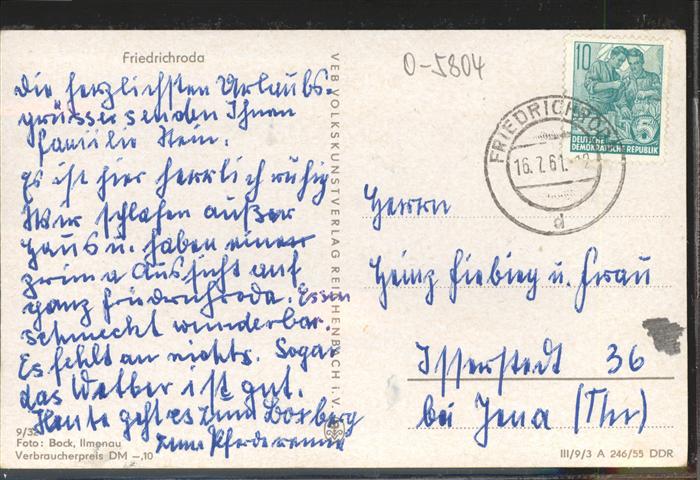 Friedrichroda
die herzlichsten Urlaubs-
grüsse senden Ihnen
Familie
Es ist hier herrlich ruhig
Wir schlafen außer
Haus u. haben einen
prima Aussicht auf
ganz Friedrichroda. Essen
schmeckt wunderbar.
Es fehlt an nichts. Sogar
das Wetter ist gut.
Heute geht es zum Boxberg
zum Pferderennen
9/32
Foto: Bock, Ilmenau
Verbraucherpreis DM —,10
VEB VOLKSKUNSTVERLAG REICHENBACH i. V.
O-5804
10
5
DEUTSCHE
DEMOKRATISCHE REPUBLIK
FRIEDRICHRODA
16.7.61.-12
d
Herrn
Heinz Fiebieg u. Frau
Isserstedt 36
bei Jena (Thr)
III/9/3 A 246/55 DDR